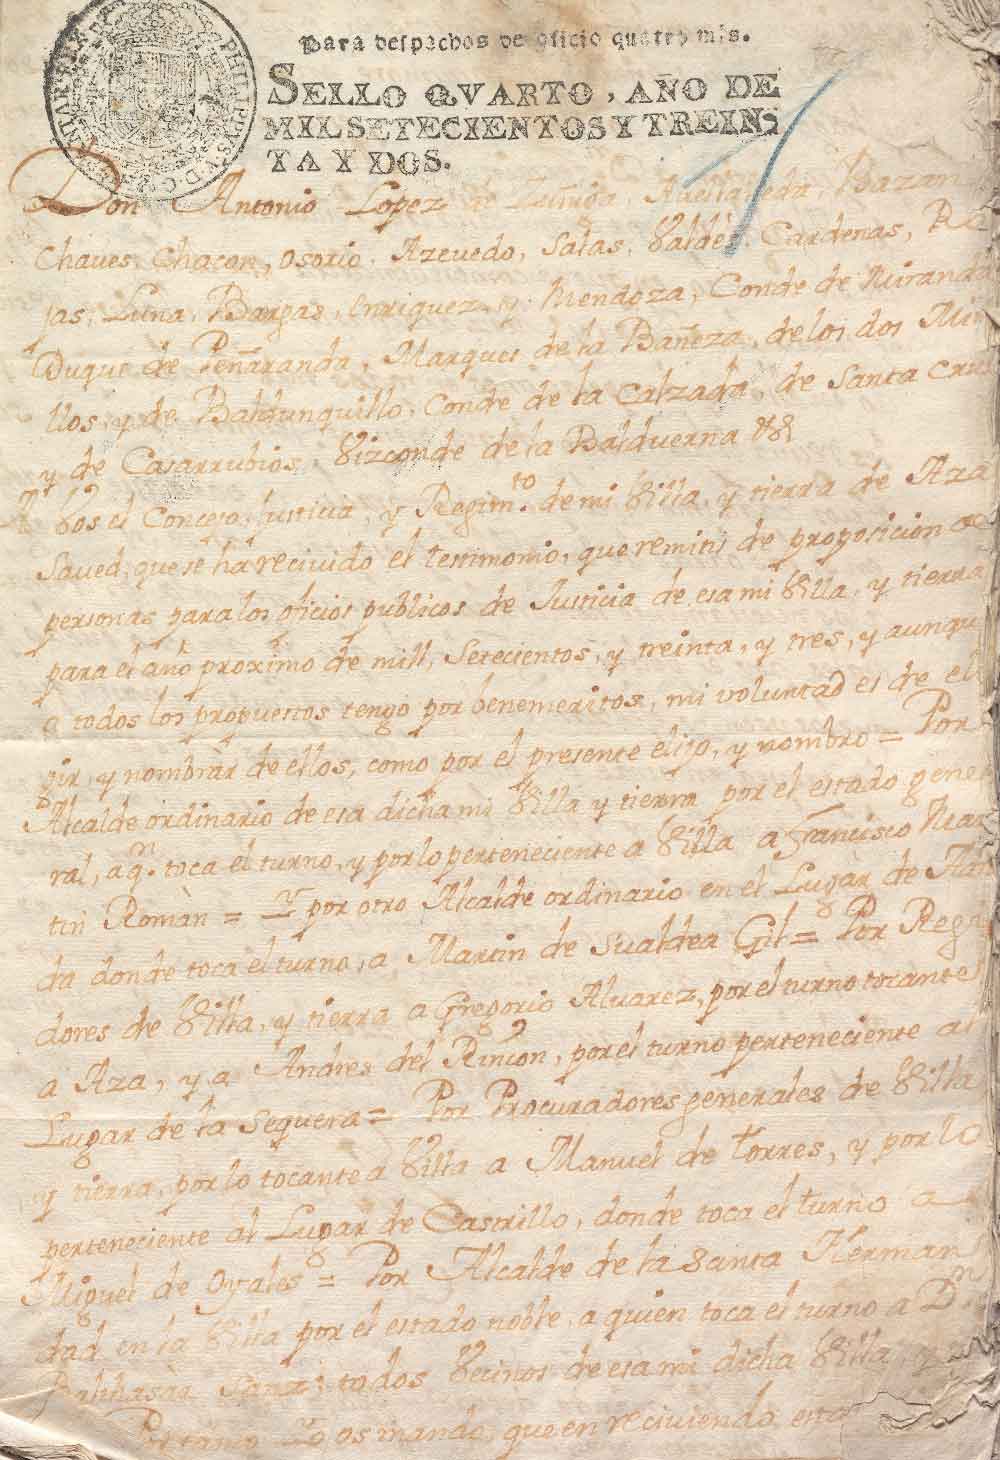 PHILIPPUS V D G
Para despachos de oficio quatro mrs.
SELLO QVARTO, AÑO DE
MIL SETECIENTOS Y TREIN-
TA Y DOS.
Don Antonio Lopez de Zuñiga, Avellaneda, Bazan
Chaves, Chacon, Osorio, Azevedo, Salas, Valdès, Cardenas, Ro
jas, Luna, Bargas, Enriquez, y Mendoza, Conde de Miranda
Duque de Peñaranda, Marques de la Bañeza, de los dos Mir
llos, y de Baldunquillo, Conde de la Calzada, de Santa Cruz
y de Casarrubios, Vizconde de la Balduerna &&
A Vos el Concejo, Justicia, y Regimto. de mi Villa, y tierra de Aza
Saved, que se ha recivido el testimonio, que remitis de proposicion de
personas para los oficios publicos de Justicia de esa mi Villa, y tierra
para el año proximo de mill, Setecientos, y treinta, y tres, y aunque
a todos los propuestos tengo por benemeritos, mi voluntad es de ele
gir, y nombràr de ellos, como por el presente elijo, y nombro = Por
Alcalde ordinario de esa dicha mi Villa y tierra por el estado gene
ral, a qn. toca el turno, y por lo perteneciente a Villa a Francisco Mar
tin Romàn = Y por otro Alcalde ordinario en el Lugàr de
da donde toca el turno, a Martin de Sualdea Gil = Por Regi
dores de Villa, y tierra a Gregorio Alvarez, por el turno tocante
a Aza, y a Andres del Rincon, por el turno perteneciente al
Lugar de la Sequera = Por Procuradores generales de Villa
y tierra, por lo tocante a Villa a Manuel de Torres, y por lo
perteneciente al Lugar de Castrillo, donde toca el turno a
Miguel de Oyales = Por Alcalde de la Santa Herman
dad en la Villa por el estado noble, a quien toca el turno a Dn.
Balthasàr Sanz; todos Vecinos de esa mi dicha Villa, y
Por tanto Yo os mando, que en reciviendo esta